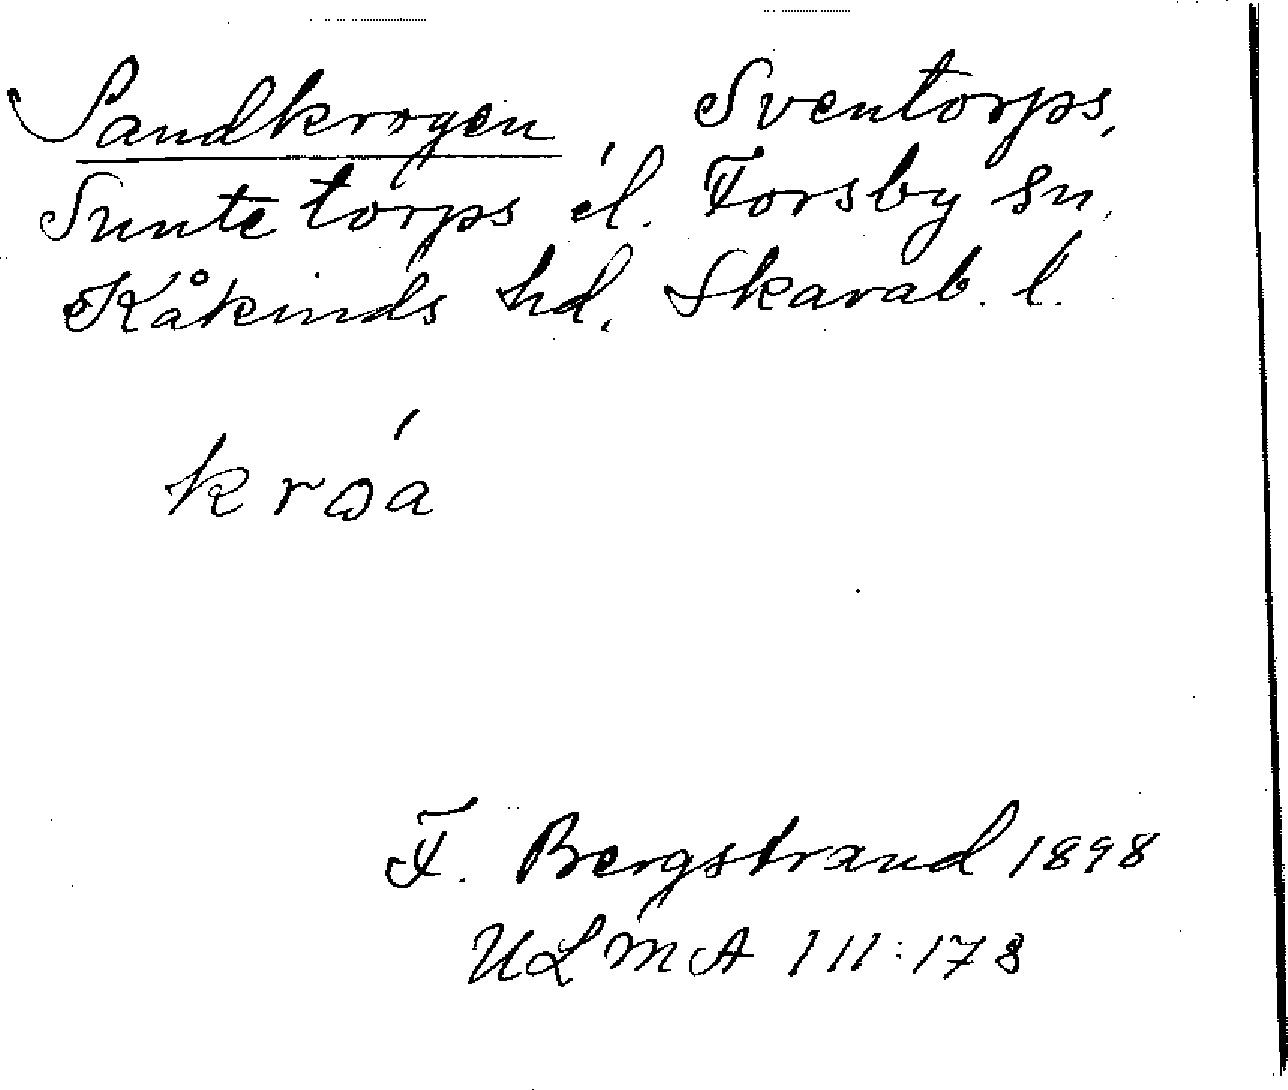 Sandkrogen, Sventorps,
Suntetorps el. Forsby sn,
Kåkinds hd, Skarab. l.
kroa
F. Bergstrand 1898
ULMA 111:178